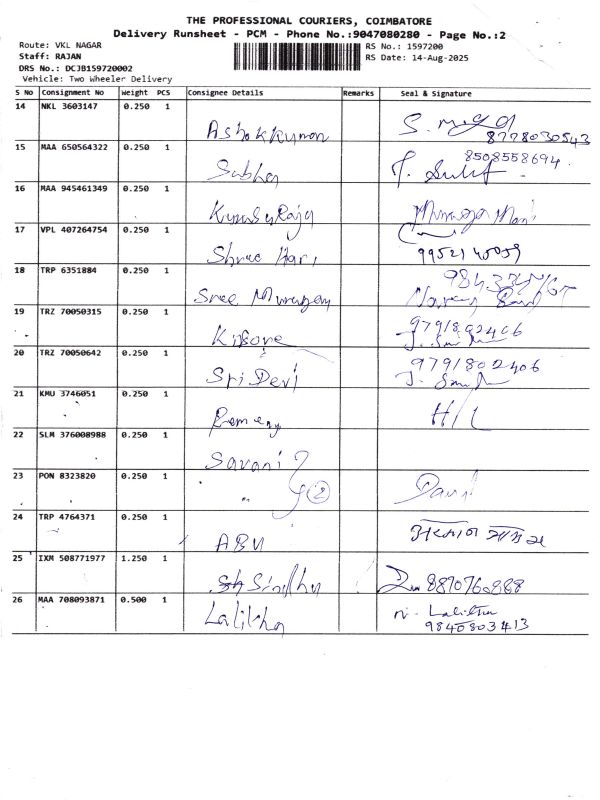 THE PROFESSIONAL COURIERS, COIMBATORE
Delivery Runsheet - PCM - Phone No.:9047080280 - Page No.:2
Route: VKL NAGAR
RS No.: 1597200
Staff: RAJAN
RS Date: 14-Aug-2025
DRS No.: DCJB159720002
Vehicle: Two Wheeler Delivery
S No Consignment No Weight PCS Consignee Details Remarks Seal & Signature
14 NKL 3603147 0.250 1 Ashokkumar
8778030543
15 MAA 650564322 0.250 1 8508558694
16 MAA 945461349 0.250 1
17 VPL 407264754 0.250 1 Shree Hari
18 TRP 6351884 0.250 1 Sree Murugan
19 TRZ 70050315 0.250 1 Kishore 9791802406
20 TRZ 70050642 0.250 1 Sri Devi 9791802406
21 KMU 3746051 0.250 1 H/L
22 SLM 376008988 0.250 1
23 PON 8323820 0.250 1 2
24 TRP 4764371 0.250 1
25 IXM 508771977 1.250 1 Sindhu
26 MAA 708093871 0.500 1 Lalitha Lalitha
9840803413